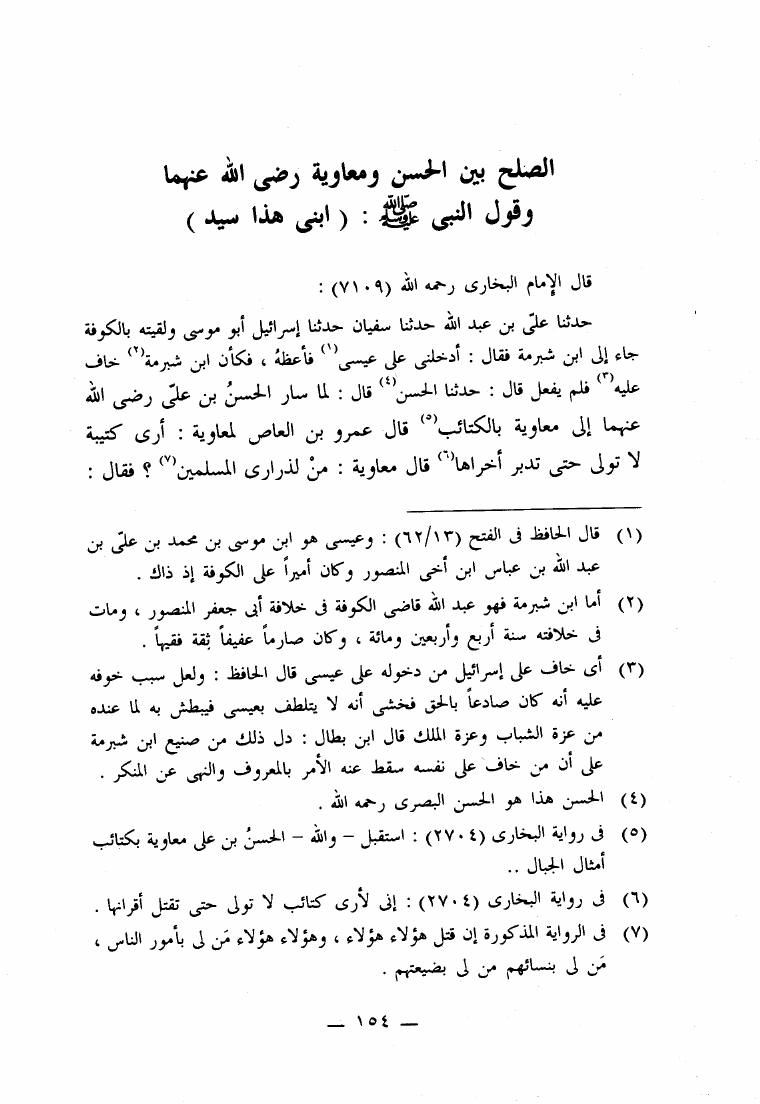 الصلح بين الحسن ومعاوية رضى الله عنهما
وقول النبى ﷺ : ( ابنى هذا سيد )
قال الإمام البخارى رحمه الله (٧١٠٩) :
حدثنا علىّ بن عبد الله حدثنا سفيان حدثنا إسرائيل أبو موسى ولقيته بالكوفة
جاء إلى ابن شبرمة فقال : أدخلنى على عيسى(١) فأعظهُ ، فكأن ابن شبرمة(٢) خاف
عليه(٣) فلم يفعل قال : حدثنا الحسن(٤) قال : لما سار الحسنُ بن علىّ رضى الله
عنهما إلى معاوية بالكتائب(٥) قال عمرو بن العاص لمعاوية : أرى كتيبة
لا تولى حتى تدبر أخراها(٦) قال معاوية : منْ لذرارى المسلمين(٧) ؟ فقال :
(١) قال الحافظ فى الفتح (٦٢/١٣) : وعيسى هو ابن موسى بن محمد بن علىّ بن
عبد الله بن عباس ابن أخى المنصور وكان أميراً على الكوفة إذ ذاك .
(٢) أما ابن شبرمة فهو عبد الله قاضى الكوفة فى خلافة أبى جعفر المنصور ، ومات
فى خلافته سنة أربع وأربعين ومائة ، وكان صارماً عفيفاً ثقة فقيهاً .
(٣) أى خاف على إسرائيل من دخوله على عيسى قال الحافظ : ولعل سبب خوفه
عليه أنه كان صادعاً بالحق فخشى أنه لا يتلطف بعيسى فيبطش به لما عنده
من عزة الشباب وعزة الملك قال ابن بطال : دل ذلك من صنيع ابن شبرمة
على أن من خاف على نفسه سقط عنه الأمر بالمعروف والنهى عن المنكر .
(٤) الحسن هذا هو الحسن البصرى رحمه الله .
(٥) فى رواية البخارى (٢٧٠٤) : استقبل – والله – الحسنُ بن على معاوية بكتائب
أمثال الجبال ..
(٦) فى رواية البخارى (٢٧٠٤) : إنى لأرى كتائب لا تولى حتى تقتل أقرانها .
(٧) فى الرواية المذكورة إن قتل هؤلاء هؤلاء ، وهؤلاء هؤلاء مَن لى بأمور الناس ،
مَن لى بنسائهم من لى بضيعتهم .
— ١٥٤ —